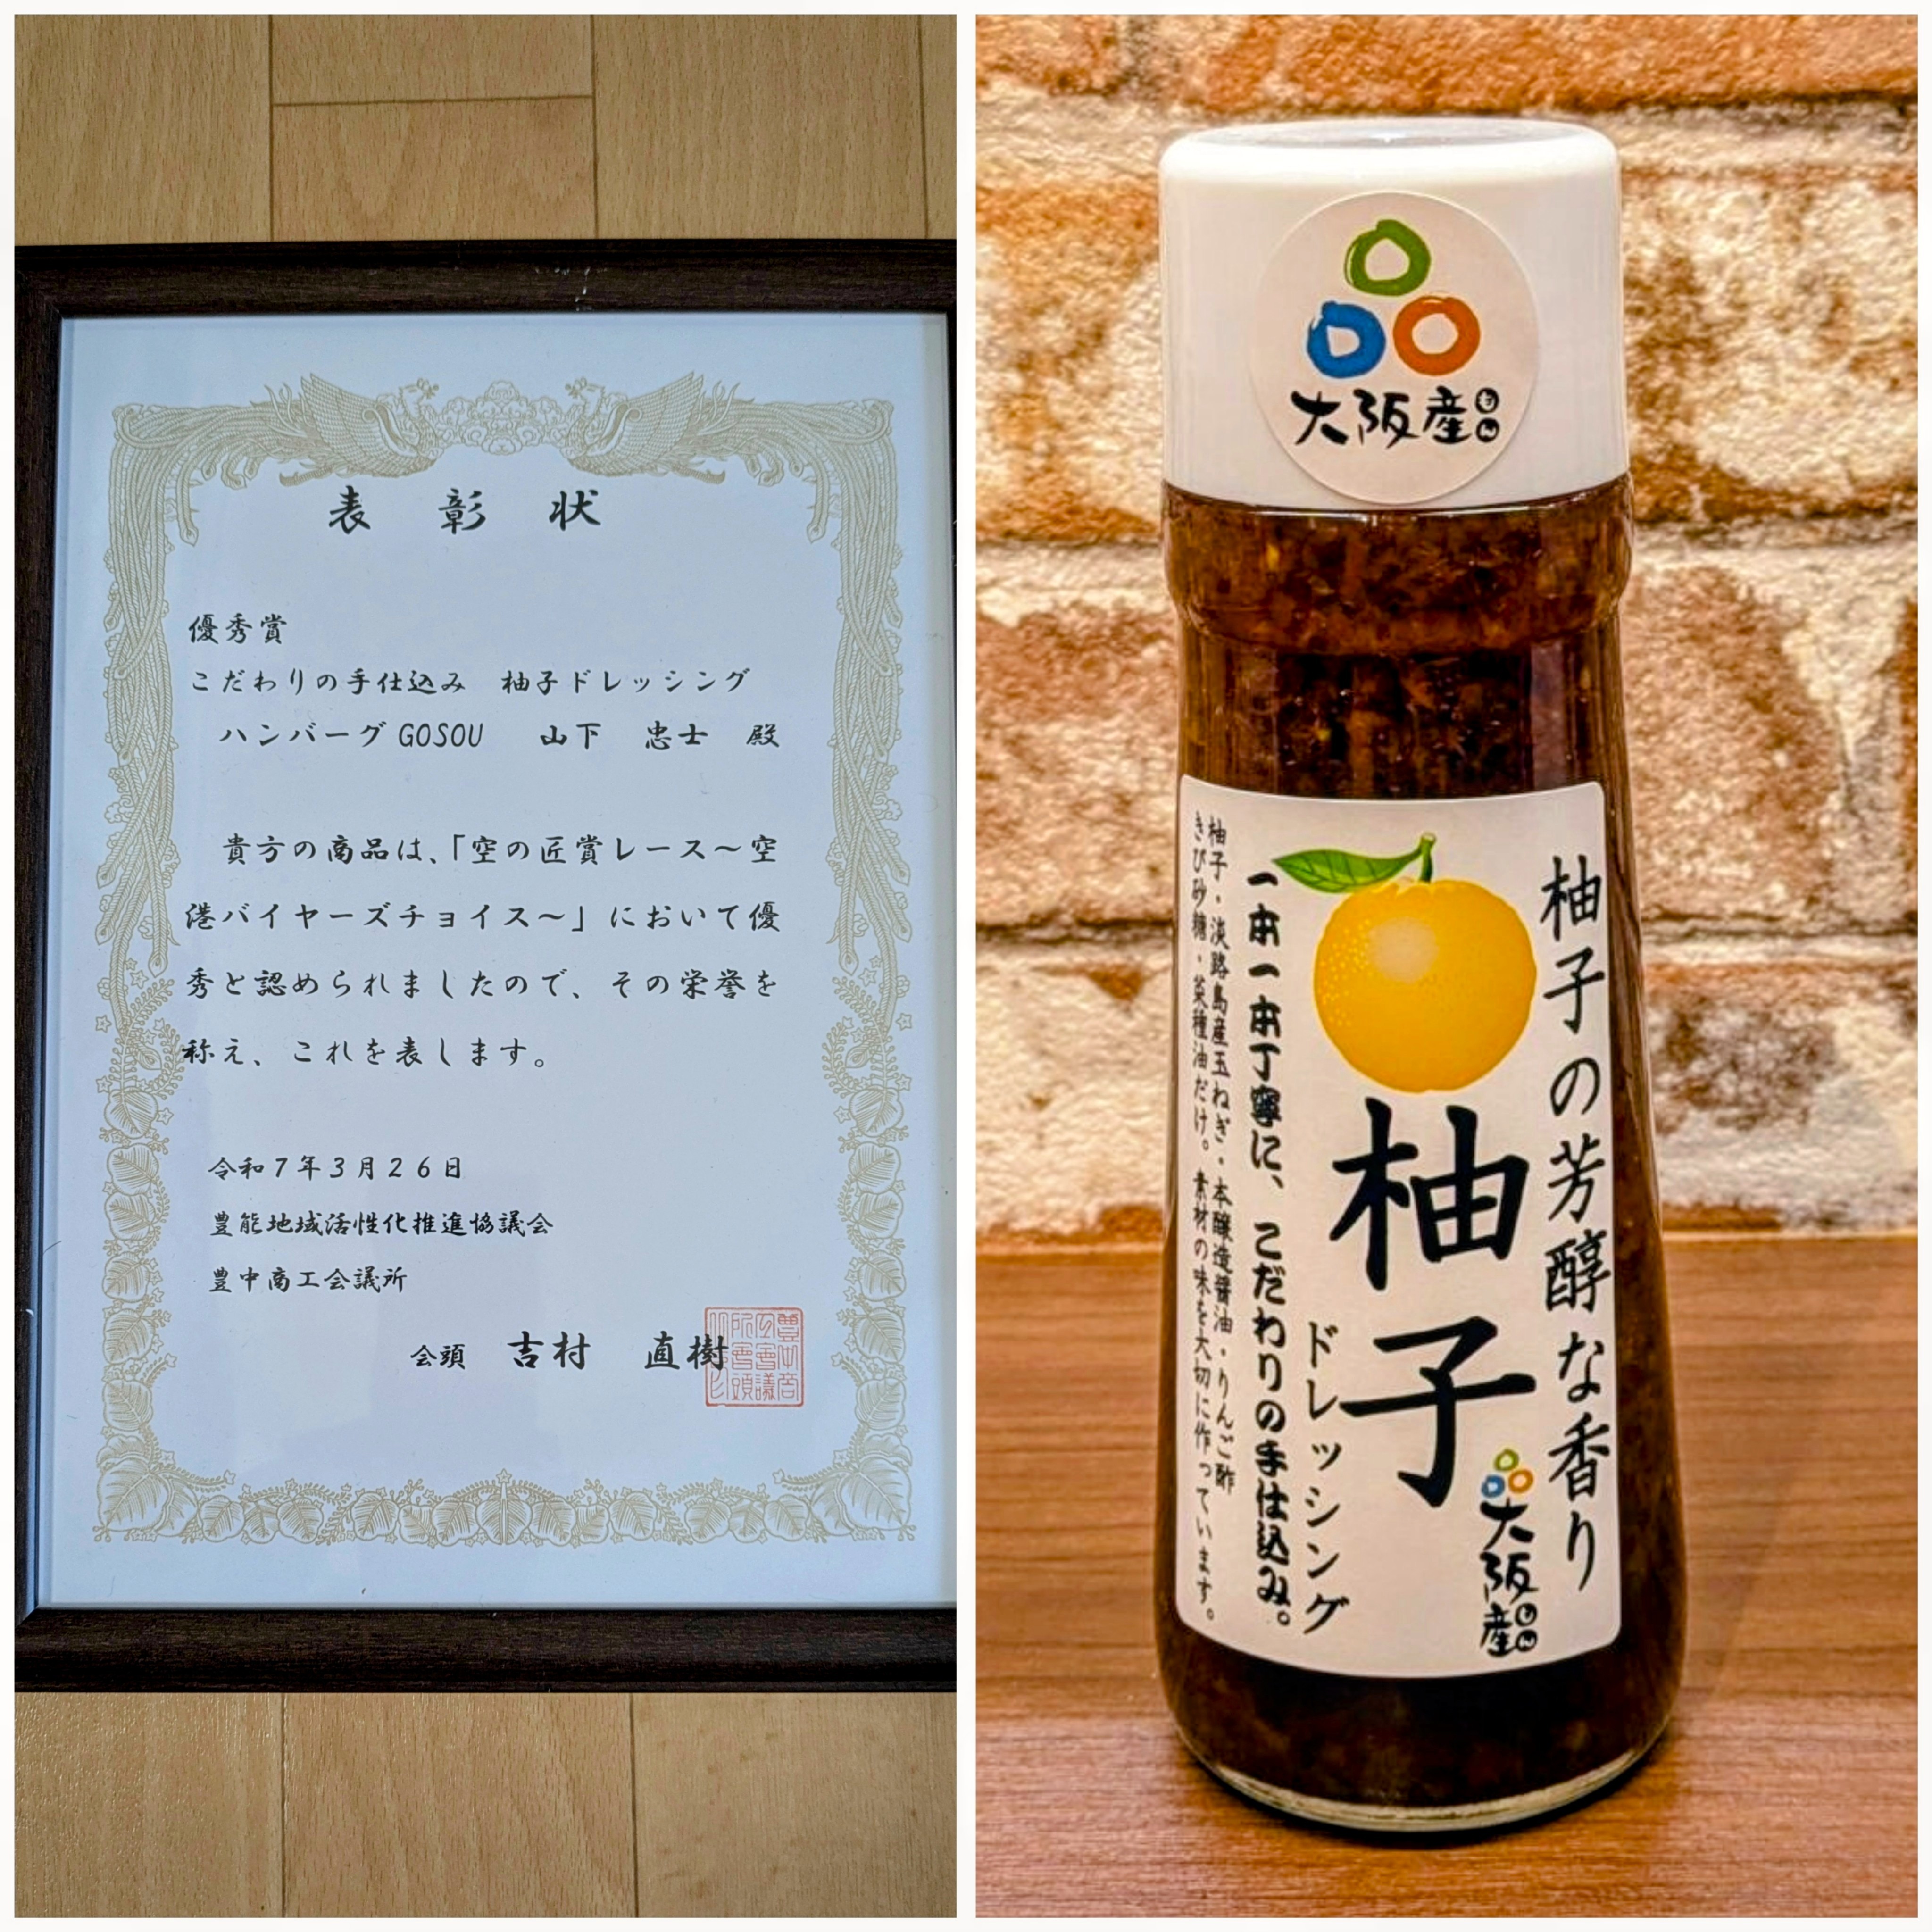 表彰状
優秀賞
こだわりの手仕込み 柚子ドレッシング
ハンバーグGOSOU 山下 忠士 殿
貴方の商品は、「空の匠賞レース～空
港バイヤーズチョイス～」において優
秀と認められましたので、その栄誉を
称え、これを表します。
令和7年3月26日
豊能地域活性化推進協議会
豊中商工会議所
会頭 吉村 直樹
豊中商
工会議
所会頭
之印
大阪産もん
柚子の芳醇な香り
柚子
ドレッシング
大阪産もん
一本一本丁寧に、こだわりの手仕込み。
柚子・淡路島産玉ねぎ・本醸造醤油・りんご酢
きび砂糖・菜種油だけ。素材の味を大切に作っています。